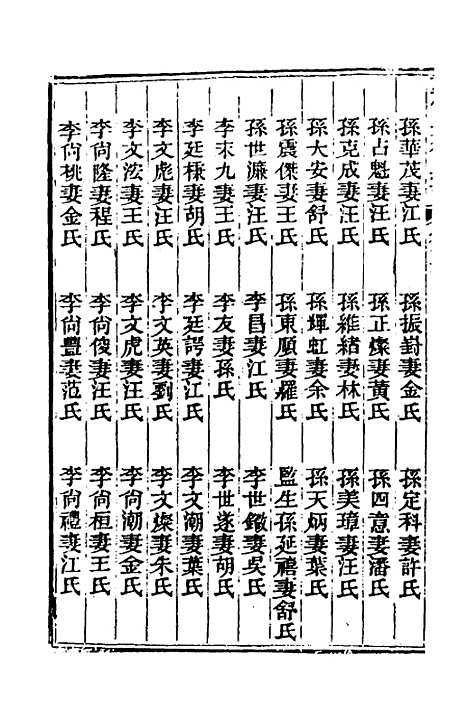 孫華茂妻江氏　孫振崶妻金氏　孫定科妻許氏
孫占魁妻汪氏　孫正燦妻黃氏　孫四意妻潘氏
孫克成妻汪氏　孫維緒妻林氏　孫美璋妻汪氏
孫大安妻舒氏　孫煇虹妻余氏　孫天炳妻葉氏
孫震傑妻王氏　孫東順妻羅氏　監生孫延禧妻舒氏
孫世濂妻汪氏　李昌妻江氏　李世鐓妻吳氏
李末九妻王氏　李友妻孫氏　李世遂妻胡氏
李廷樣妻胡氏　李廷諤妻江氏　李文潮妻葉氏
李文彪妻汪氏　李文英妻劉氏　李文燦妻朱氏
李文浤妻王氏　李文虎妻汪氏　李尙潮妻金氏
李尙隆妻程氏　李尙俊妻汪氏　李尙桓妻王氏
李尙桃妻金氏　李尙豐妻范氏　李尙禮妻江氏